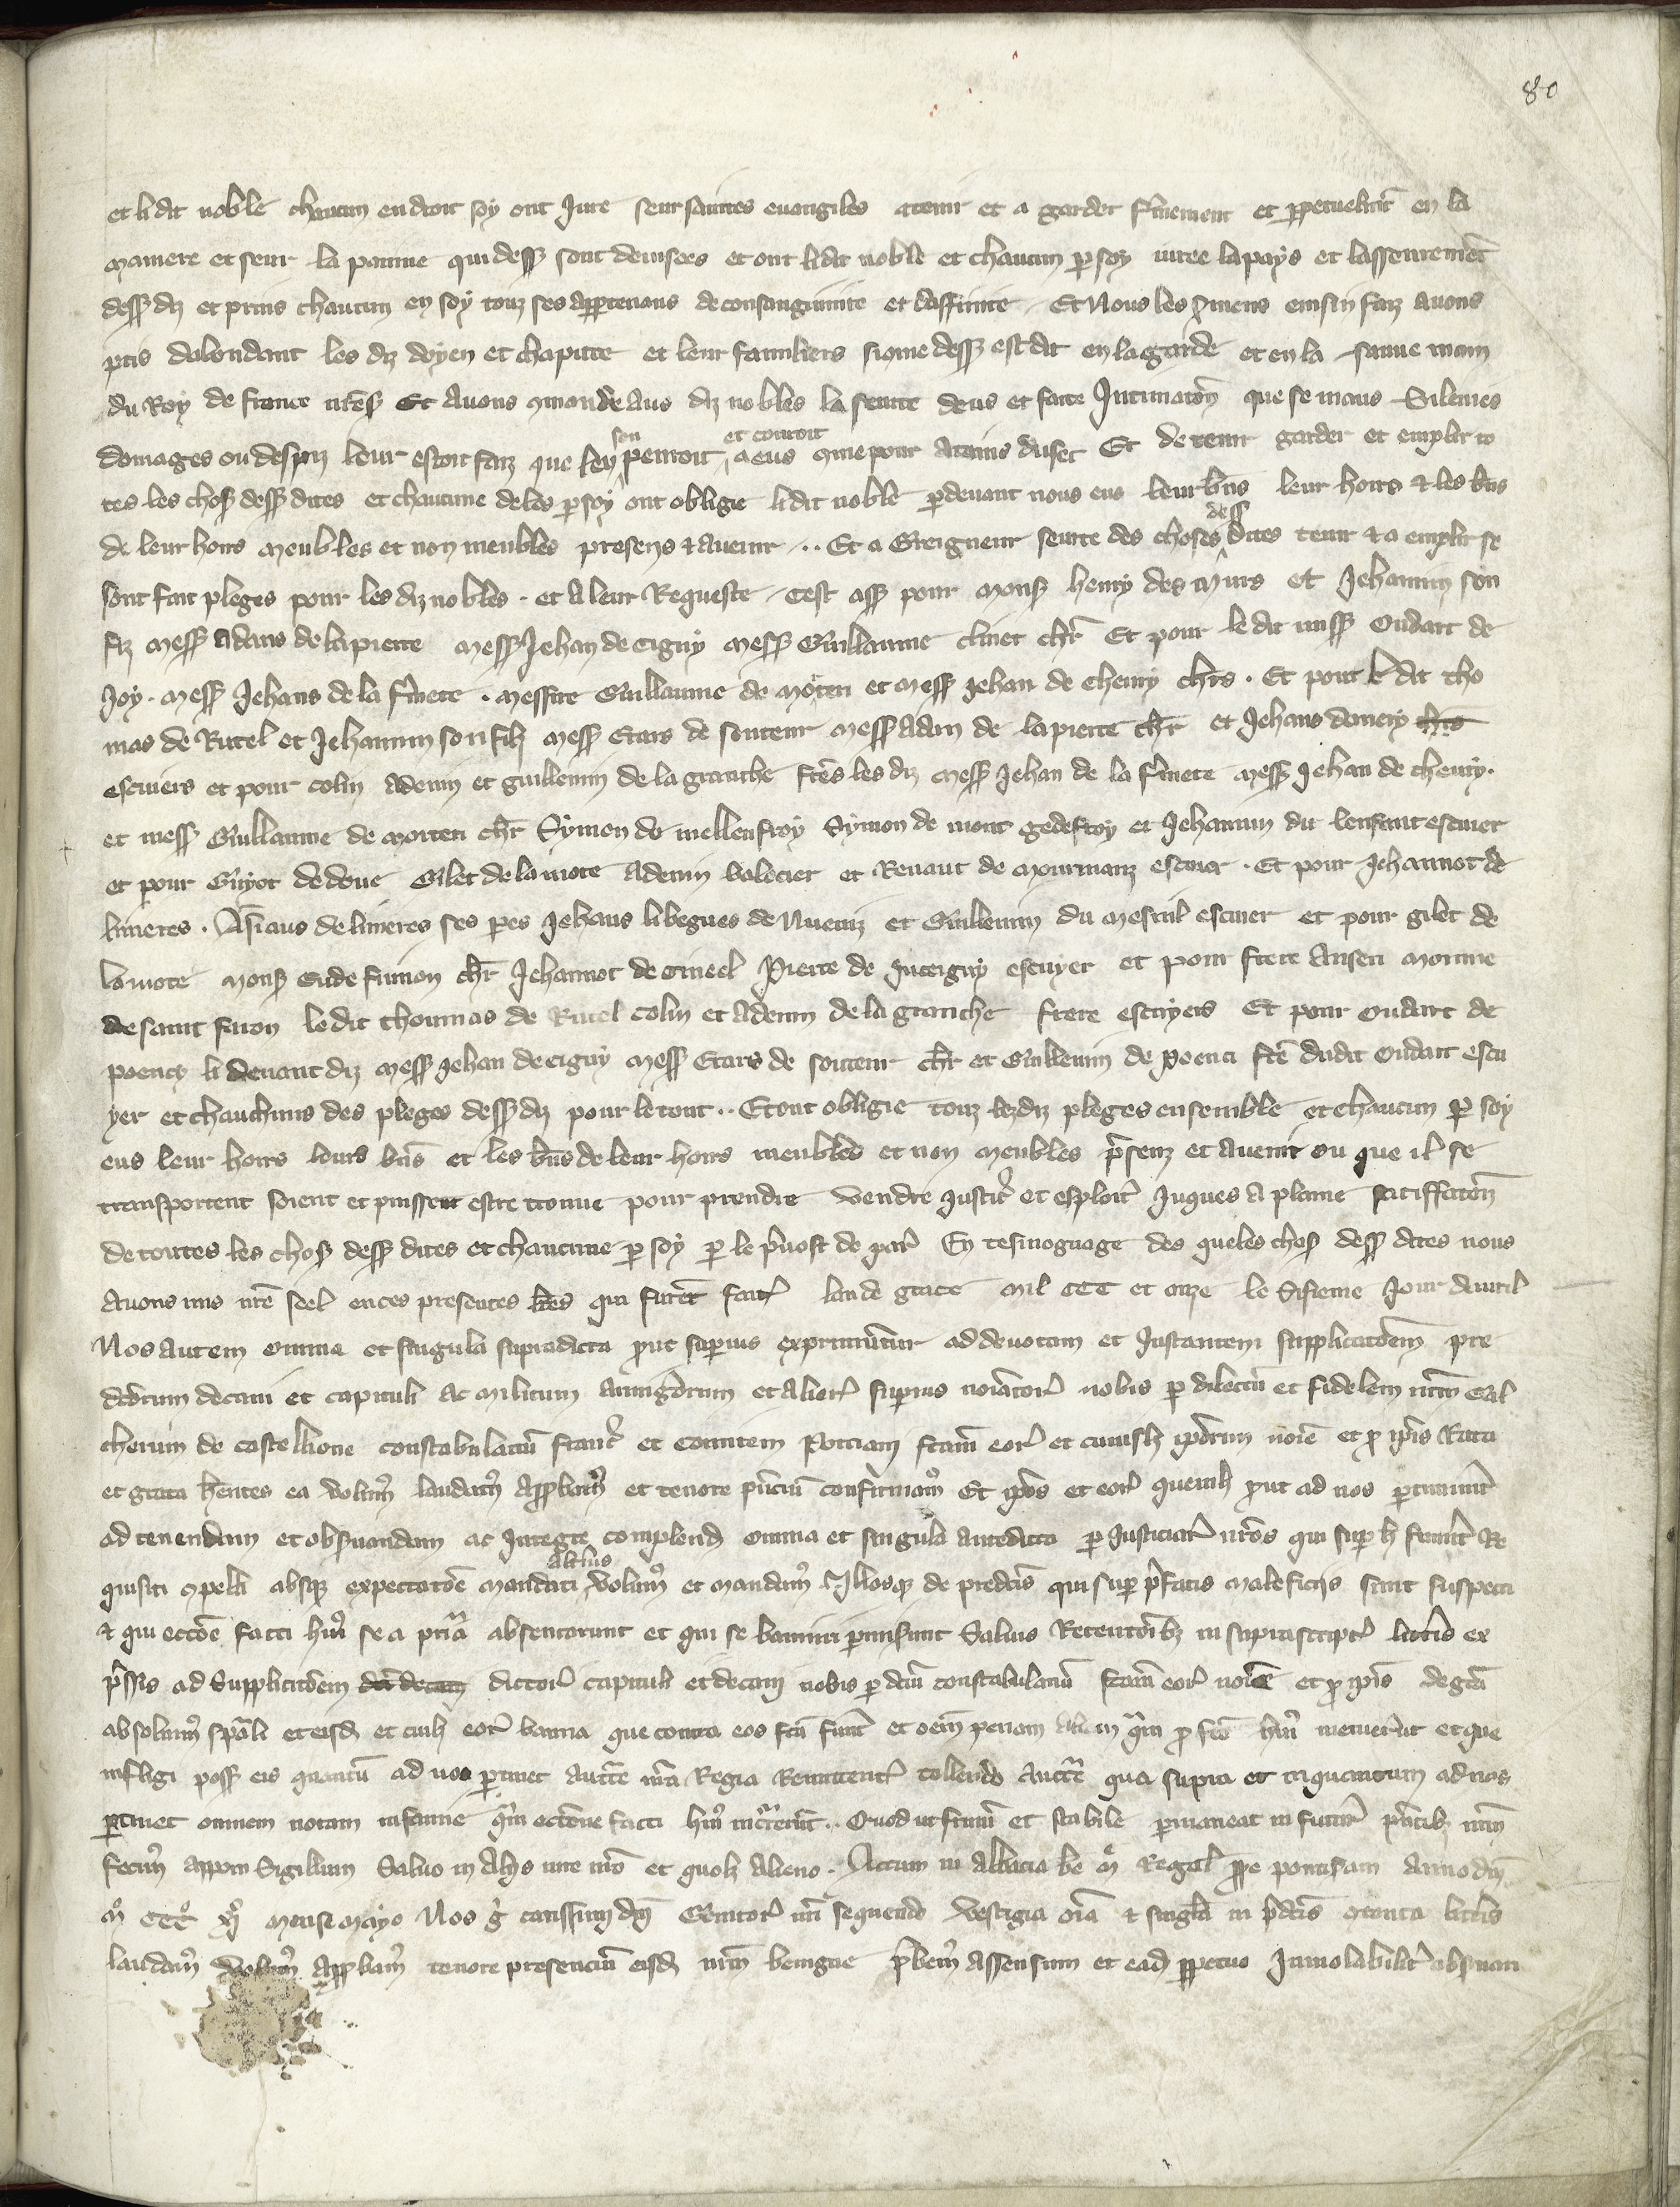 80
et li dit noble chaucun endroit soy ont Jure seur saintes euangiles a tenir et a garder fmement et ppetuelmt en la
maniere et seur la painne qui dess sont deuisees et ont li dit noble et chaucun p soy iuree la pays et lasseuremet
dess diz et prins chaucun en soy touz ses appartenans de consanguinite et daffinite Et Nous les pmens einsin faiz auons
pris dabondant les diz doyen et chapitre et leur familiers sicome dess est dit en la garde et en la sauue main
du Roy de france nres Et auons comande aus diz nobles la seurte deus et faite Intimaton que se maus Silenies
domages ou despiz leur estoit faiz que len sen penroit a eus et courroit come pour atains du fet Et de tenir garder et emplir to
tes les chos dess dites et chaucune deles p soy ont obligie li dit noble p deuant nous eus leur bns leur hoirs & les bns
de leur hoirs meubles et non meubles presens & auenir .. Et a Greigneur seurte des choses dess dites tenir & a emplir se
sont fait pleges pour les diz nobles . et a leur Requeste cest ass pour mons henry des murs et Jehannin son
fiz mess adans de la pierre mess Jehan de cigny mess Guillaume clinet chr Et pour le dit mess Oudart de
Joy . mess Jehans de la fmete . messire Guillaume de morteri et mess Jehan de chenry chrs . Et pour le dit tho
mas de Rutel et Jehannin son filz mess Erars de souteur mess adam de la pierre chr et Jehans doncry chrs
escuiers et pour colin adenin et guillemin de la granche fres les diz mess Jehan de la fmete mess Jehan de chenry .
et mess Guillaume de morteri chr Symon de mellenfroy Symon de mont gedefroy et Jehannin dit lenfant escuier
et pour Guyot de doue Gilet de la mote adenin Valecier et Renaut de mourmanz escuier . Et pour Jehannot de
linieres . Asiaus de linieres ses peres Jehans li begues de Nuemz et Guillemin du mesnil escuier et pour gilet de
la mote mons Eude simon chr Jehannot de cineel Pierre de Juceigny escuyer et pour frere anseri morine
de saint siuon le dit thoumas de Rutel colin et adenin de la granche frere escuyers Et pour oudart de
poency li deuant diz mess Jehan de cigny mess Erars de souteur chr et Guillemin de poenci fre dudit oudart escu
yer et chauchuns des pleges dess diz pour le tout .. Et ont obligie touz lesdiz pleges ensemble et chaucun p soy
eus leur hoirs leurs bns et les bns de leur hoirs meubles et non meubles psenz et auenir ou que il se
transportent soient et puissent estre trouue pour prendre vendre justic et esploit Juques a plaine satiffaton
de toutes les chos dess dites et chaucune p soy p le puost de par En tesmognage des queles chos dess dites nous
auons mis nre seel en ces presentes ltres qui furet fait lan de grace mil CCC et onze le Sisieme jour dauril
Nos autem omnia et singula supradicta put superius exprimutur ad deuotam et Instantem supplicatoem pre
dictorum decani et capituli ac militum armigorum et alior superius noiator nobis p dilectu et fidelem nrm Gal
cherum de castellione constabulariu franc et comitem Porciani fcam eor et cuiuslz ipsorum noie et p ipis Rata
et grata hentes ea volum laudam applam et tenore pnciu confirmam Et ipos et eor quemlz put ad nos ptinuit
ad tenendum et obsuandum ac Integre complend omnia et singula antedicta p Justiciar nros qui sup h fuerint Re
quisiti opelli absq expectatoe mandati alterius volum et mandam Illosq de predcis qui sup pfatis maleficiis sunt suspecti
& qui occoe facti hui se a pria absentarunt et qui se banniri pmiserunt Saluis Retentoibz in suprascript litteris ex
pssis ad supplicatoem dci decani dictor capituli et decani nobis p dcm constabulariu fcam eor noie et p ipis de gra
absoluim spali et eisd et cuilz eor banna que contra eos fca fuit et oem penam aliam qm p fco hui incurrerut et que
infligi poss eis quantu ad nos ptinet auctte nra Regia Remittent tollendo auctte qua supra et inquantum ad nos
ptinet omnem notam infamie qm occione facti hui incurrerut .. Quod ut firmu et stabile pmaneat in futur pntibz nrm
fecim apponi Sigillum Saluo in Aliis iure nro et quolz alieno . Actum in abbacia be m Regal ppe pontisaram anno dni
m CCC xi mense mayo Nos g carissimi dni Genitor nri sequendo vestigia oia & singla in pdcis contenta litteris
laudam volum appbam tenore presenciu eisd nrm benigne pbem assensum et ead ppetuo Inuiolabilit obsuari